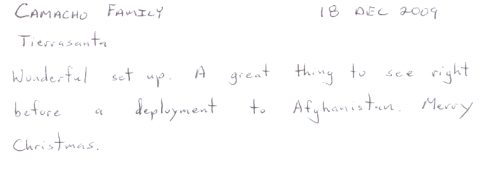 CAMACHO FAMILY 18 DEC 2009
Tierrasanta
Wonderful set up. A great thing to see right
before a deployment to Afghanistan. Merry
Christmas.